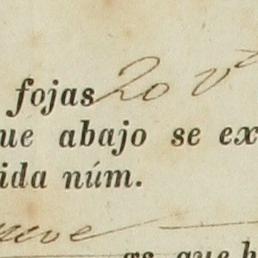 fojas 20 v^ta
ue abajo se ex
ida núm.
as que h